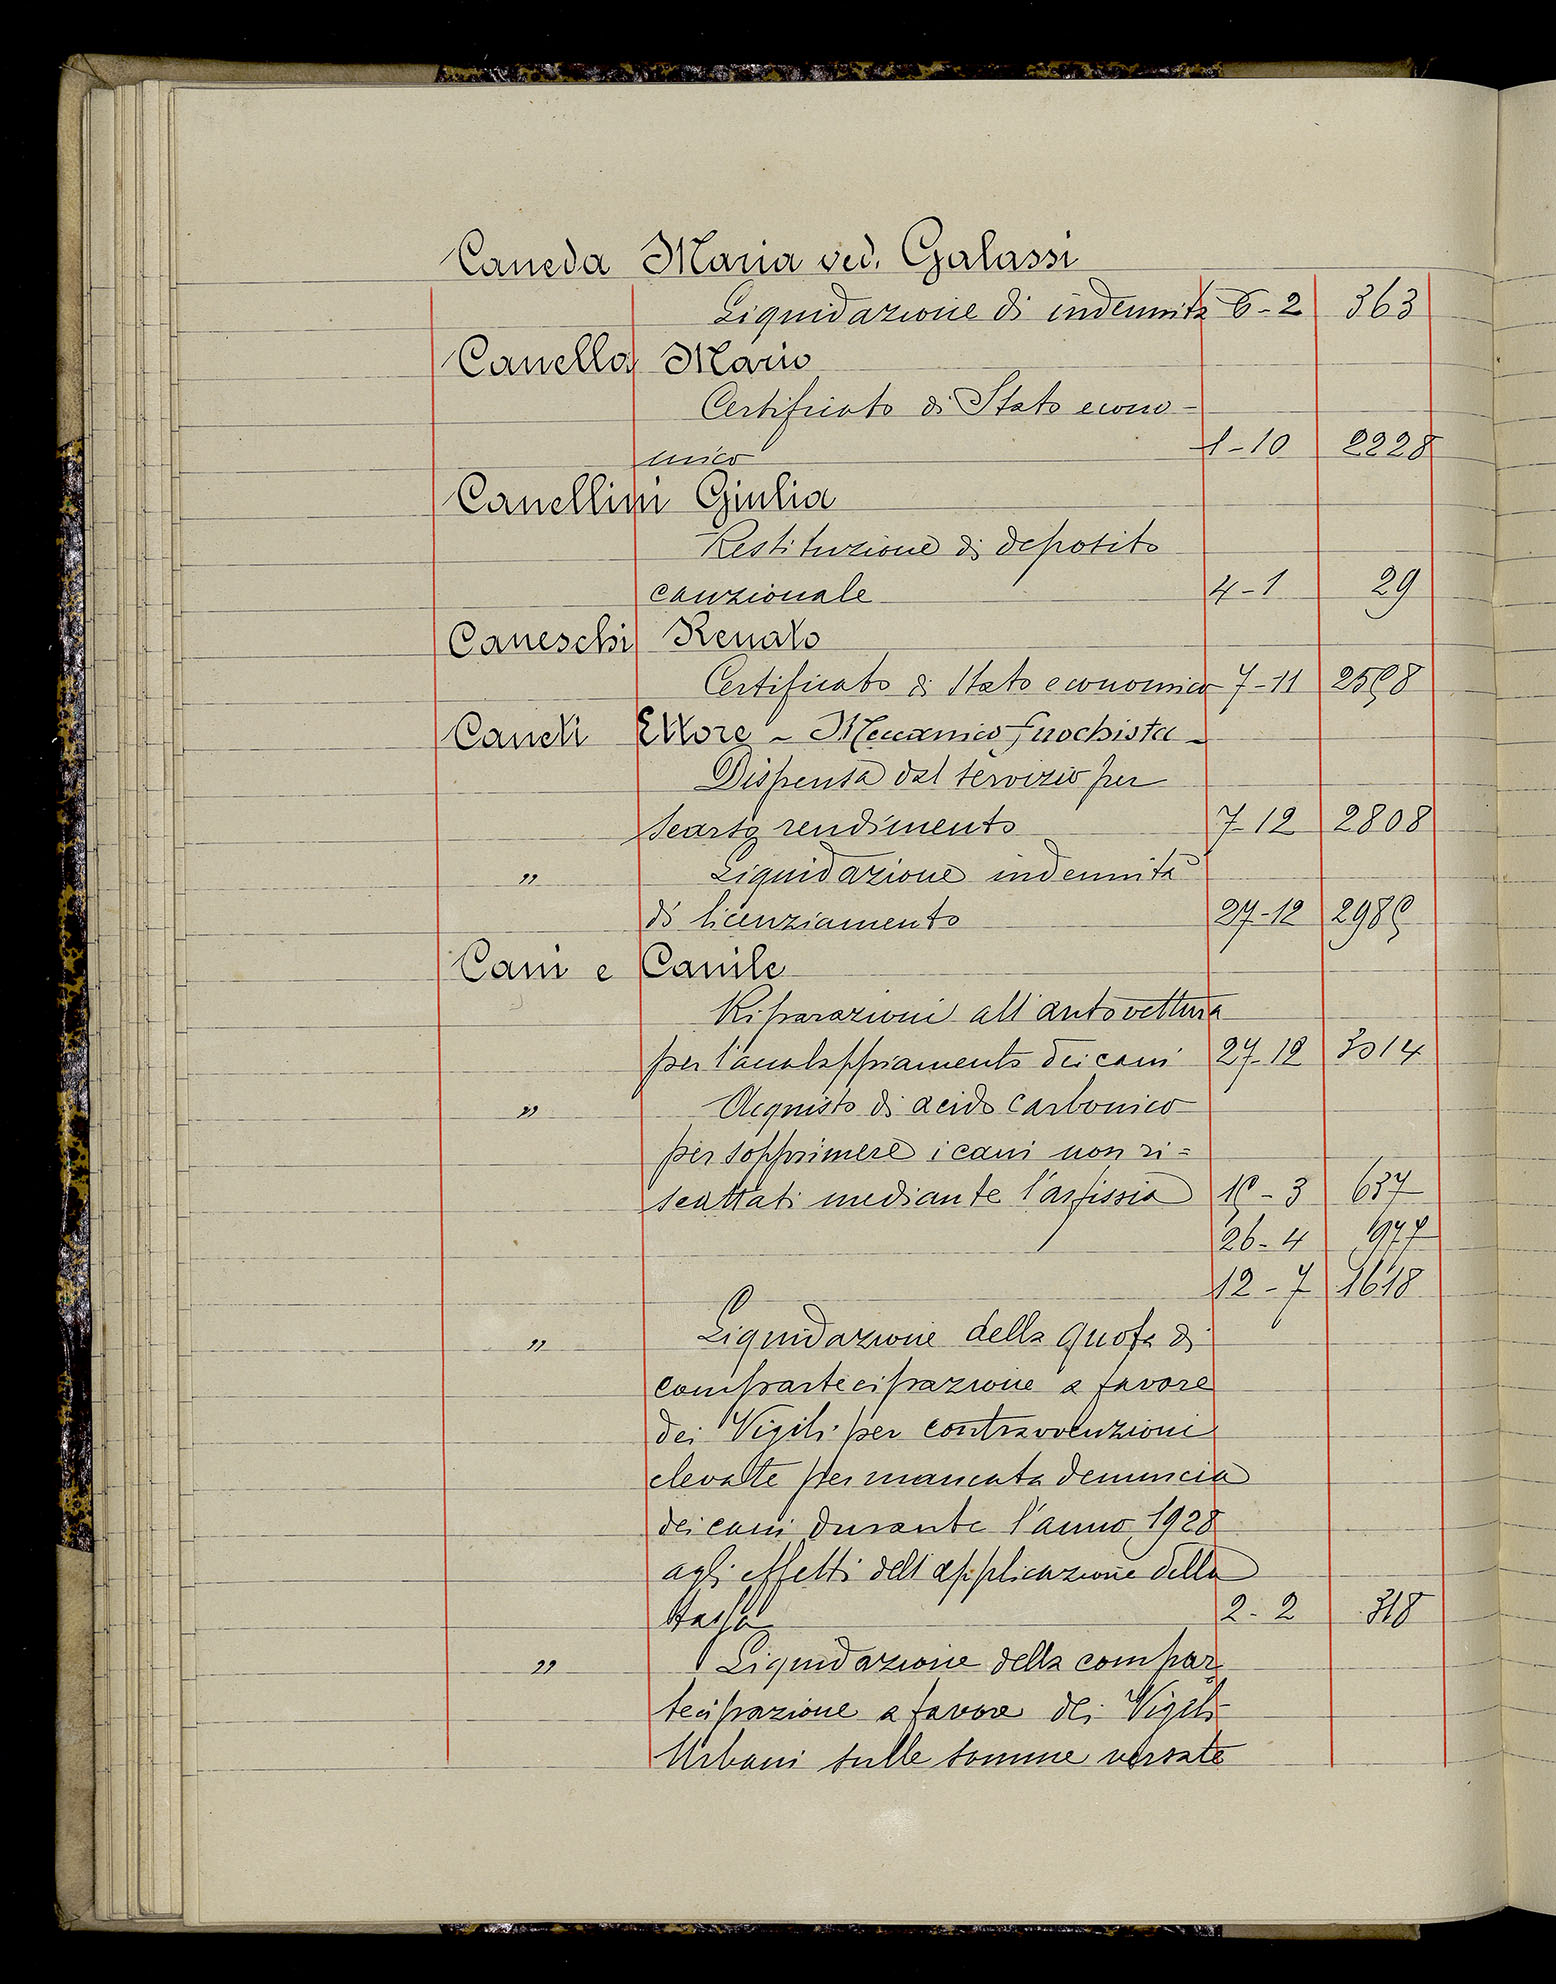 Caneda Maria ved. Galassi
Liquidazione di indennità 6-2 363
Canella Mario
Certificato di Stato econo-
mico 1-10 2228
Canellini Giulia
Restituzione di deposito
cauzionale 4-1 29
Caneschi Renato
Certificato di Stato economico 7-11 2598
Caneti Ettore - Meccanico fuochista -
Dispensa dal servizio per
scarso rendimento 7-12 2808
" Liquidazione indennità
di licenziamento 27-12 2989
Cani e Canile
Riparazioni all'autovettura
per l'accalappiamento dei cani 27-12 3014
" Acquisto di acido carbonico
per sopprimere i cani non ri=
scattati mediante l'asfissia 19-3 637
26-4 977
12-7 1618
" Liquidazione della quota di
compartecipazione a favore
dei Vigili per contravvenzioni
elevate per mancata denuncia
dei cani durante l'anno 1928
agli effetti dell'applicazione della
tassa 2-2 318
" Liquidazione della compar
tecipazione a favore dei Vigili
Urbani sulle somme versate